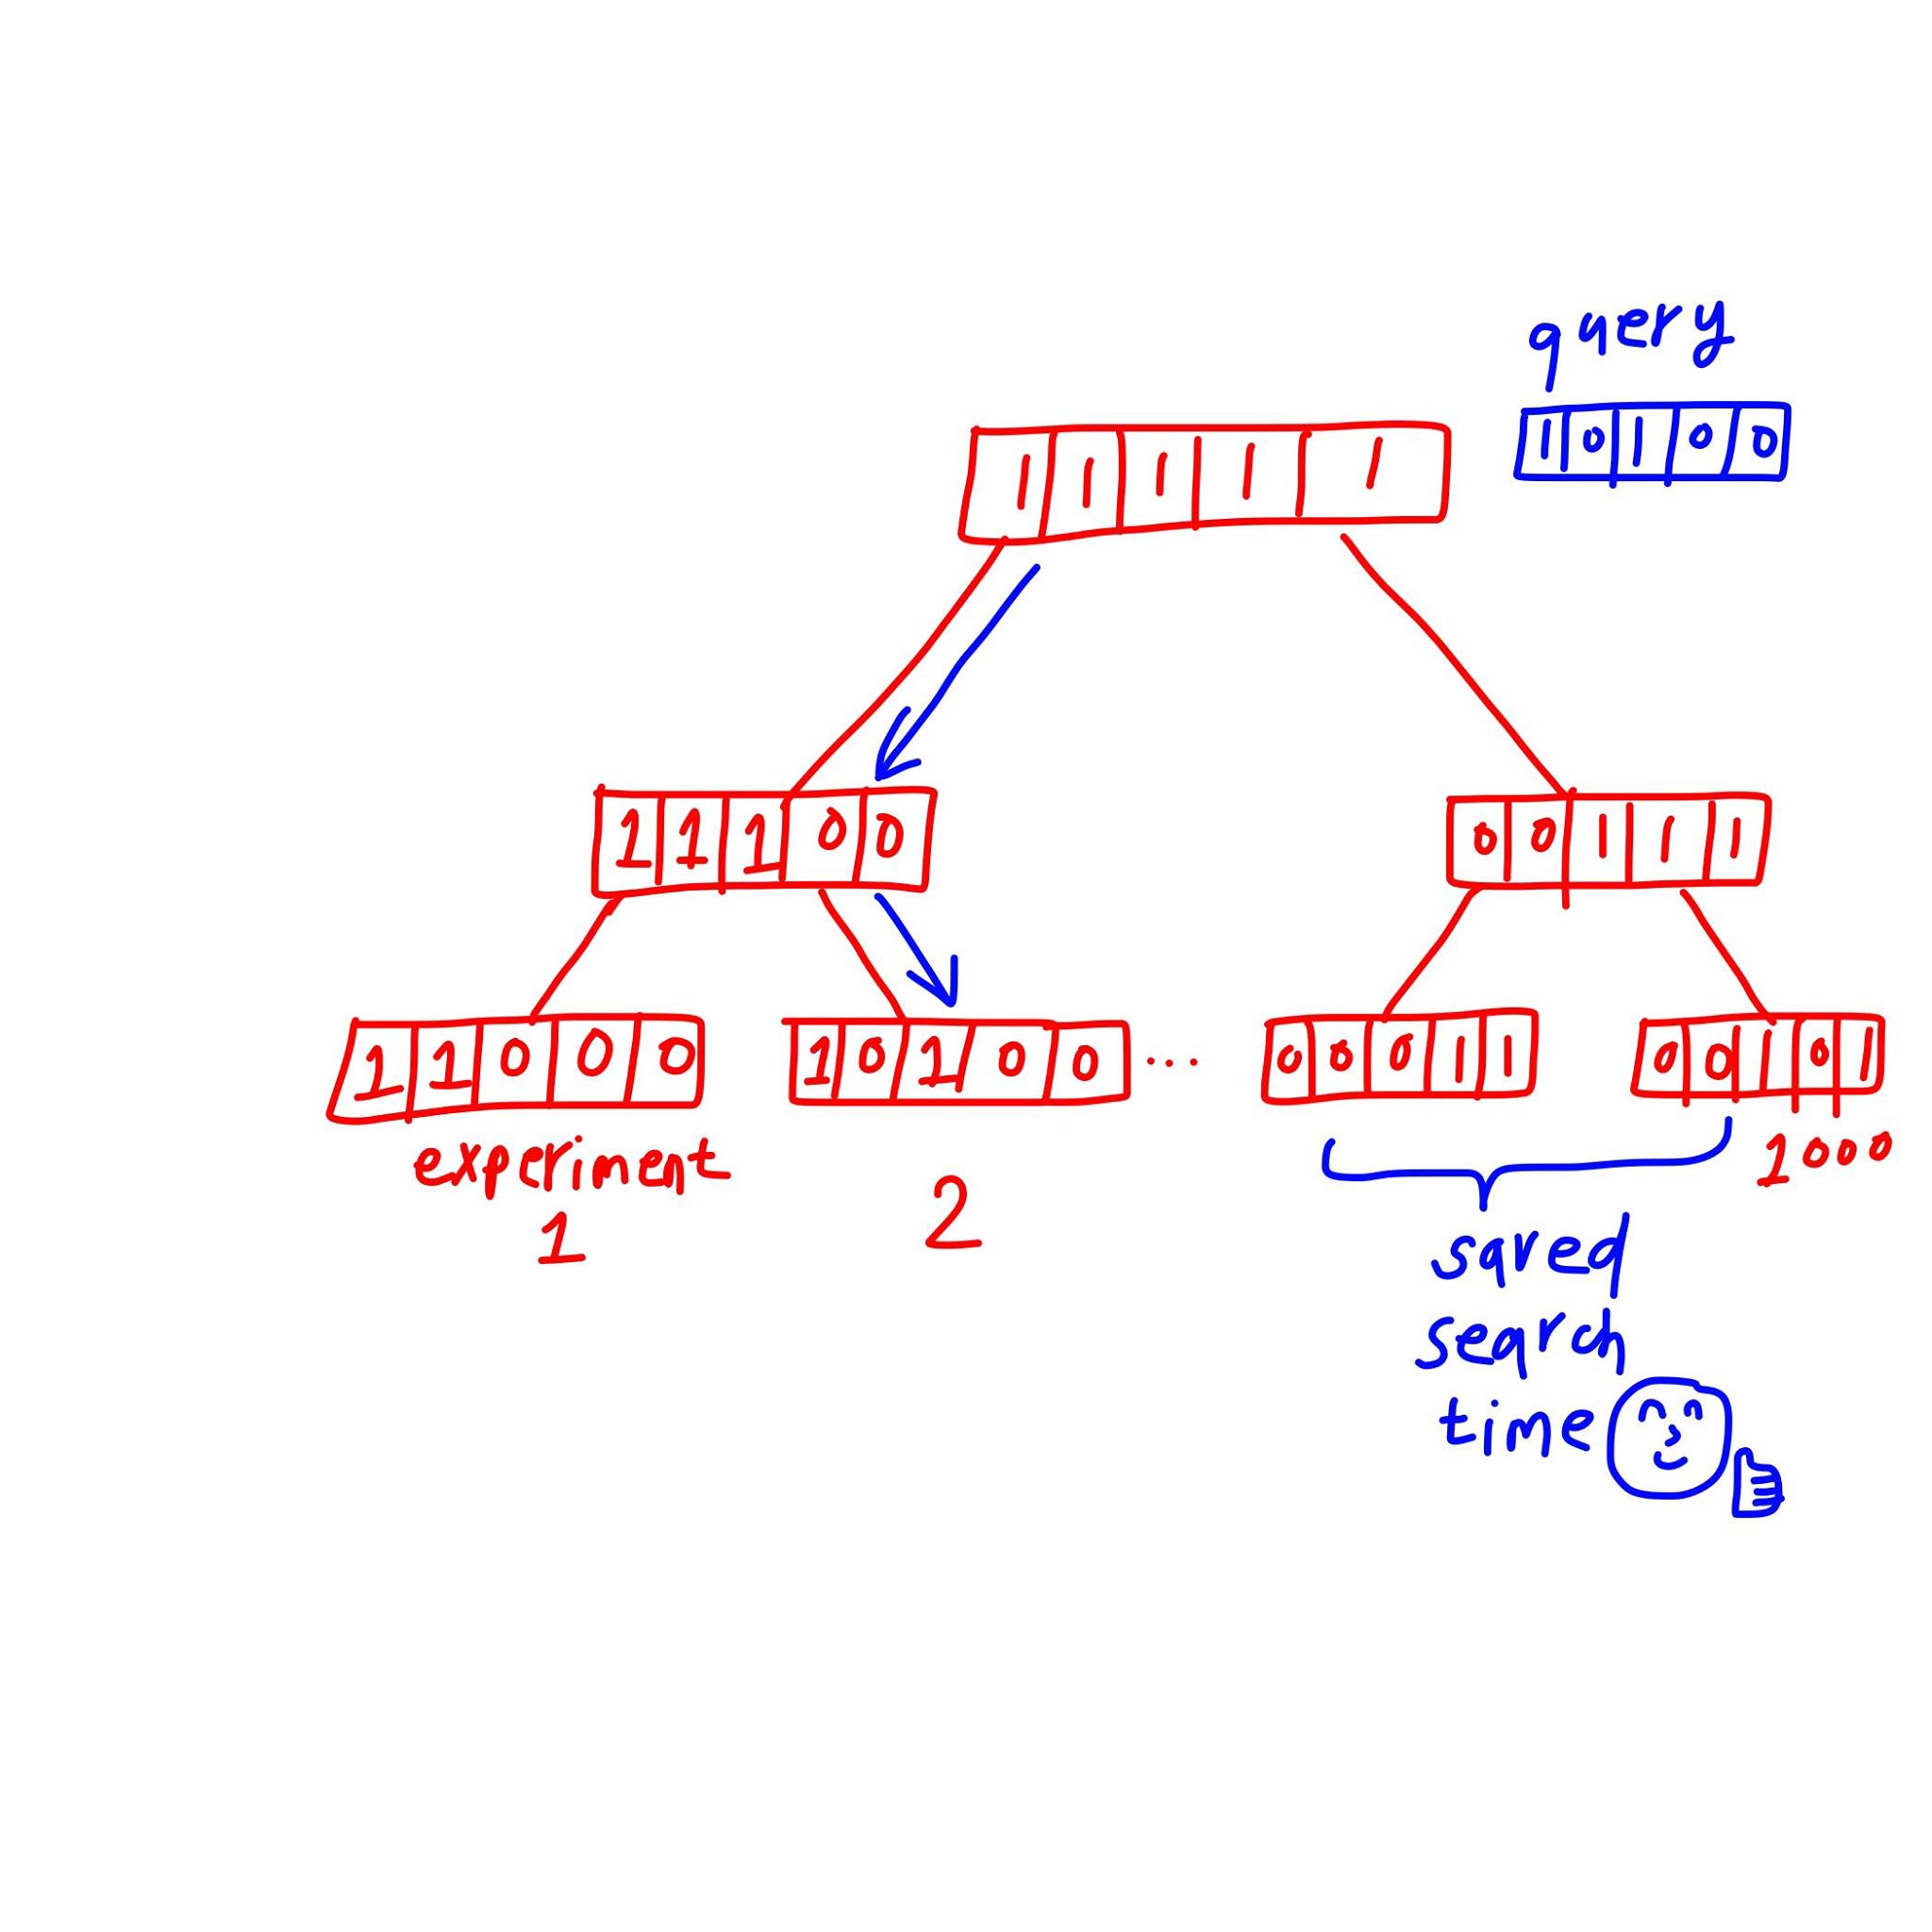 query
1 0 1 0 0
1 1 1 1 1
1 1 1 0 0
0 0 1 1 1
1 1 0 0 0
1 0 1 0 0 ...
0 0 0 1 1
0 0 1 0 1
experiment
1
2
1000
saved
search
time